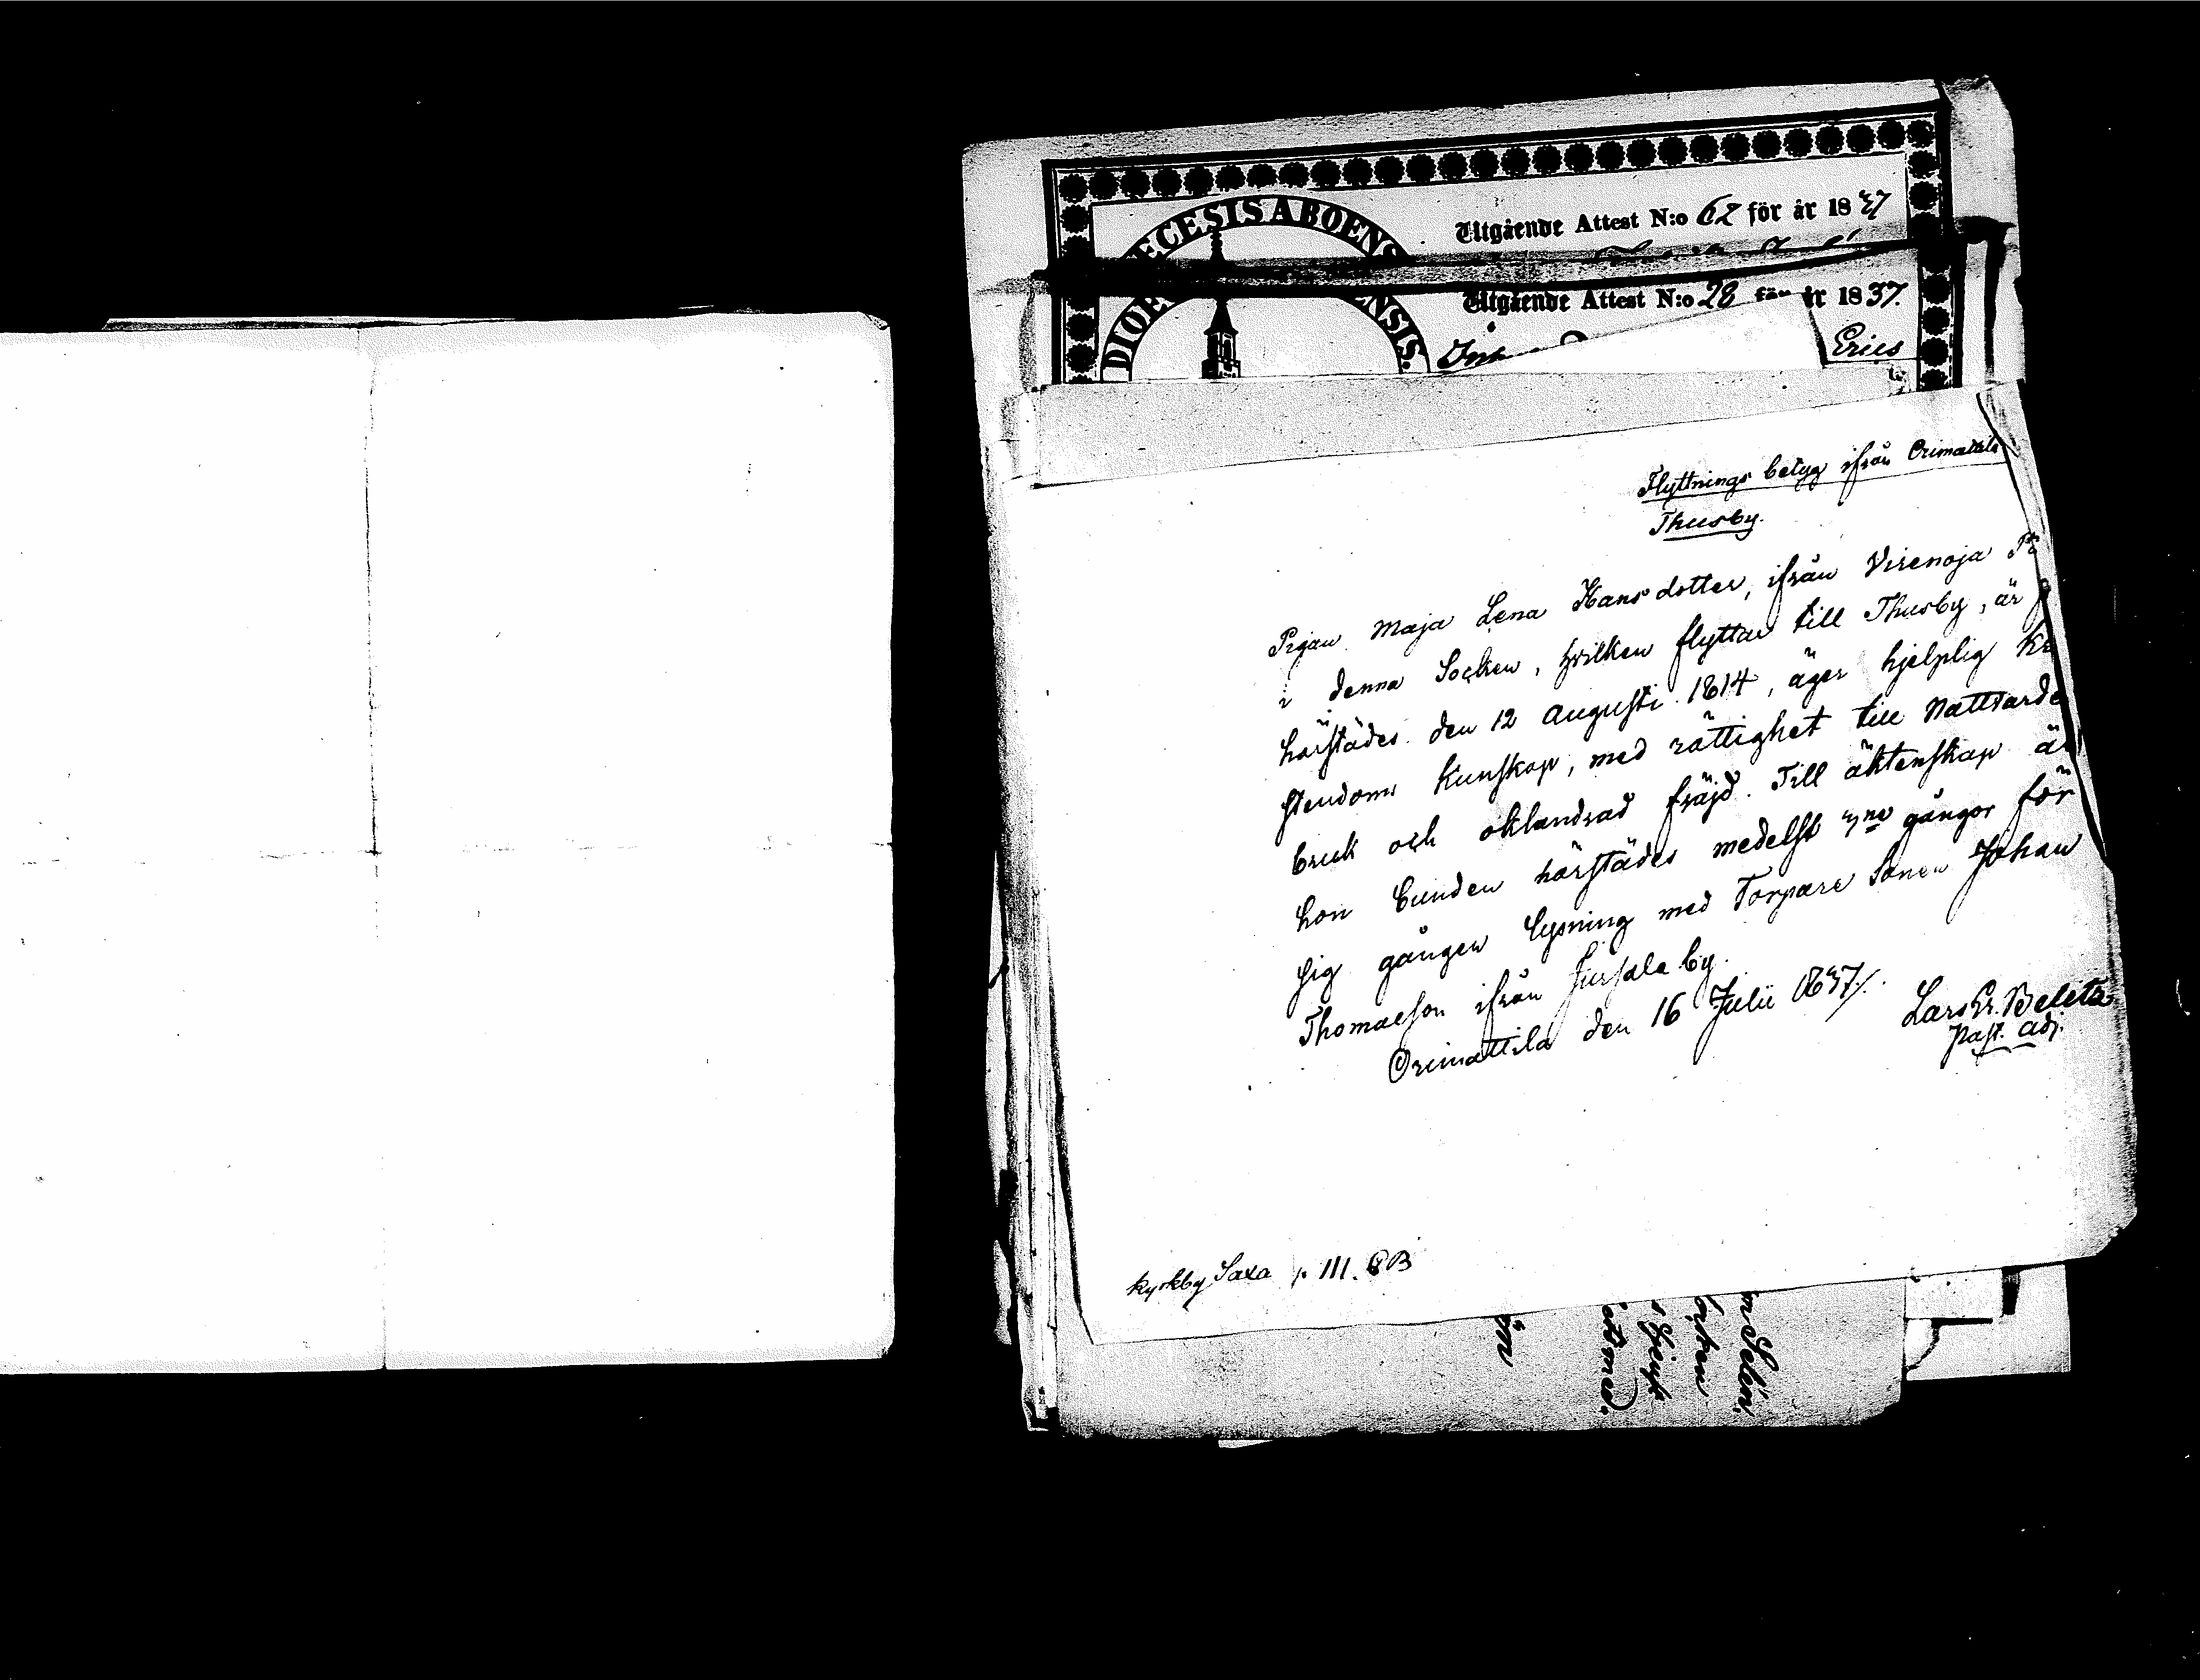 DIOECESIS ABOENSIS.
Utgående Attest N:o 62 för år 1837
DIOECESIS ABOENSIS.
Utgående Attest N:o 28 för år 1837.
Erics
Flyttnings betyg ifrån Orimattila
Thusby.
Pigan Maja Lena Hansdotter, ifrån Virenoja
i denna Socken, hvilken flyttar till Thusby, är
härstädes den 12 Augusti 1814, äger hjelplig
stendoms Kunskap, med rättighet till Nattvarde
bruk och oklandrad fräjd. Till äktenskap är
hon bunden härstädes medelst 3ne gångor för
sig gången lysning med Torpare Sonen Johan
Thomasson ifrån by.
Orimattila den 16 Julii 1837/.
Lars Er.
Past. Adj.
Kyrkby Saxa p. 111. BB